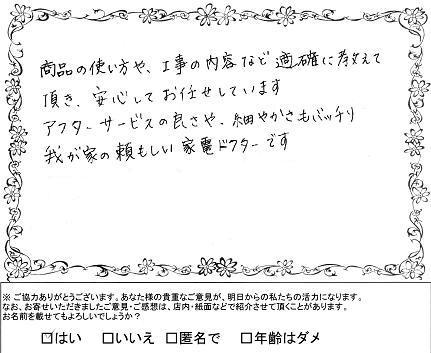 商品の使い方や、工事の内容など適確に教えて
頂き、安心してお任せしています
アフターサービスの良さや、細やかさもバッチリ
我が家の頼もしい家電ドクターです
※ ご協力ありがとうございます。あなた様の貴重なご意見が、明日からの私たちの活力になります。
なお、お寄せいただきましたご意見・ご感想は、店内・紙面などで紹介させて頂くことがあります。
お名前を載せてもよろしいでしょうか？
☑はい □いいえ □匿名で □年齢はダメ